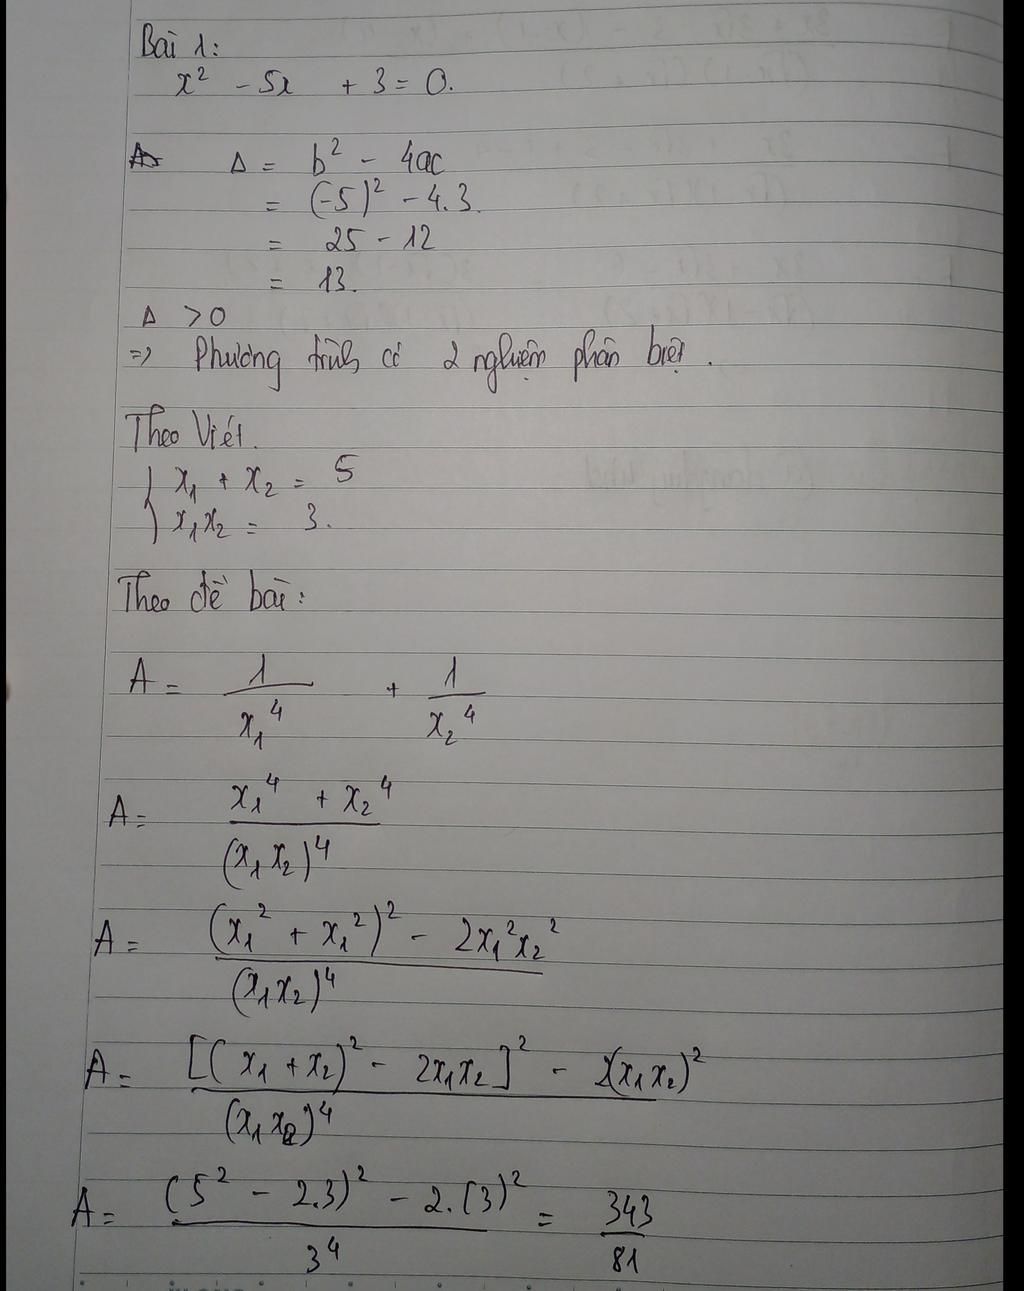 Bài 1:
x² - 5x + 3 = 0.
Δ = b² - 4ac
= (-5)² - 4.3.
= 25 - 12
= 13.
Δ > 0
=> Phương trình có 2 nghiệm phân biệt.
Theo Viét.
{ x₁ + x₂ = 5
x₁x₂ = 3.
Theo đề bài:
A = 1/x₁⁴ + 1/x₂⁴
A = (x₁⁴ + x₂⁴)/(x₁x₂)⁴
A = ((x₁² + x₁²)² - 2x₁²x₂²)/(x₁x₂)⁴
A = ([(x₁ + x₂)² - 2x₁x₂]² - 2(x₁x₂)²)/(x₁x₂)⁴
A = ((5² - 2.3)² - 2.(3)²)/3⁴ = 343/81